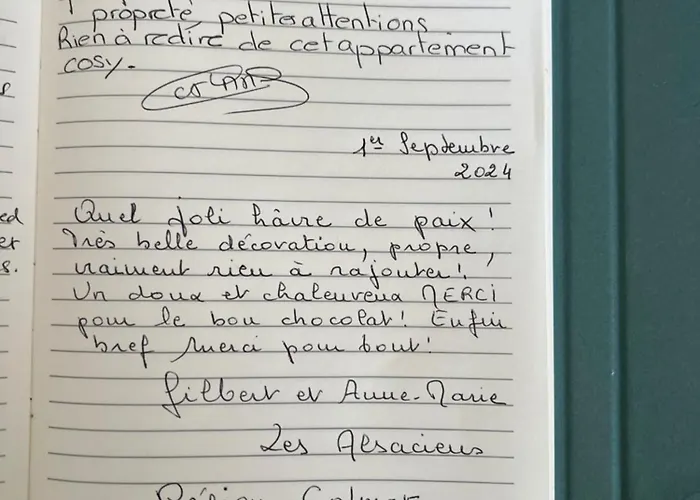 propreté, petites attentions
Rien à redire de cet appartement
cosy.
1er Septembre
2024
Quel joli hâvre de paix!
Très belle décoration, propre,
vraiment rien à rajouter!
Un doux et chaleureux MERCI
pour le bon chocolat! Enfin
bref Merci pour tout!
Gilbert et Anne-Marie
Les Alsaciens
Région Colmar
ed
er
s.